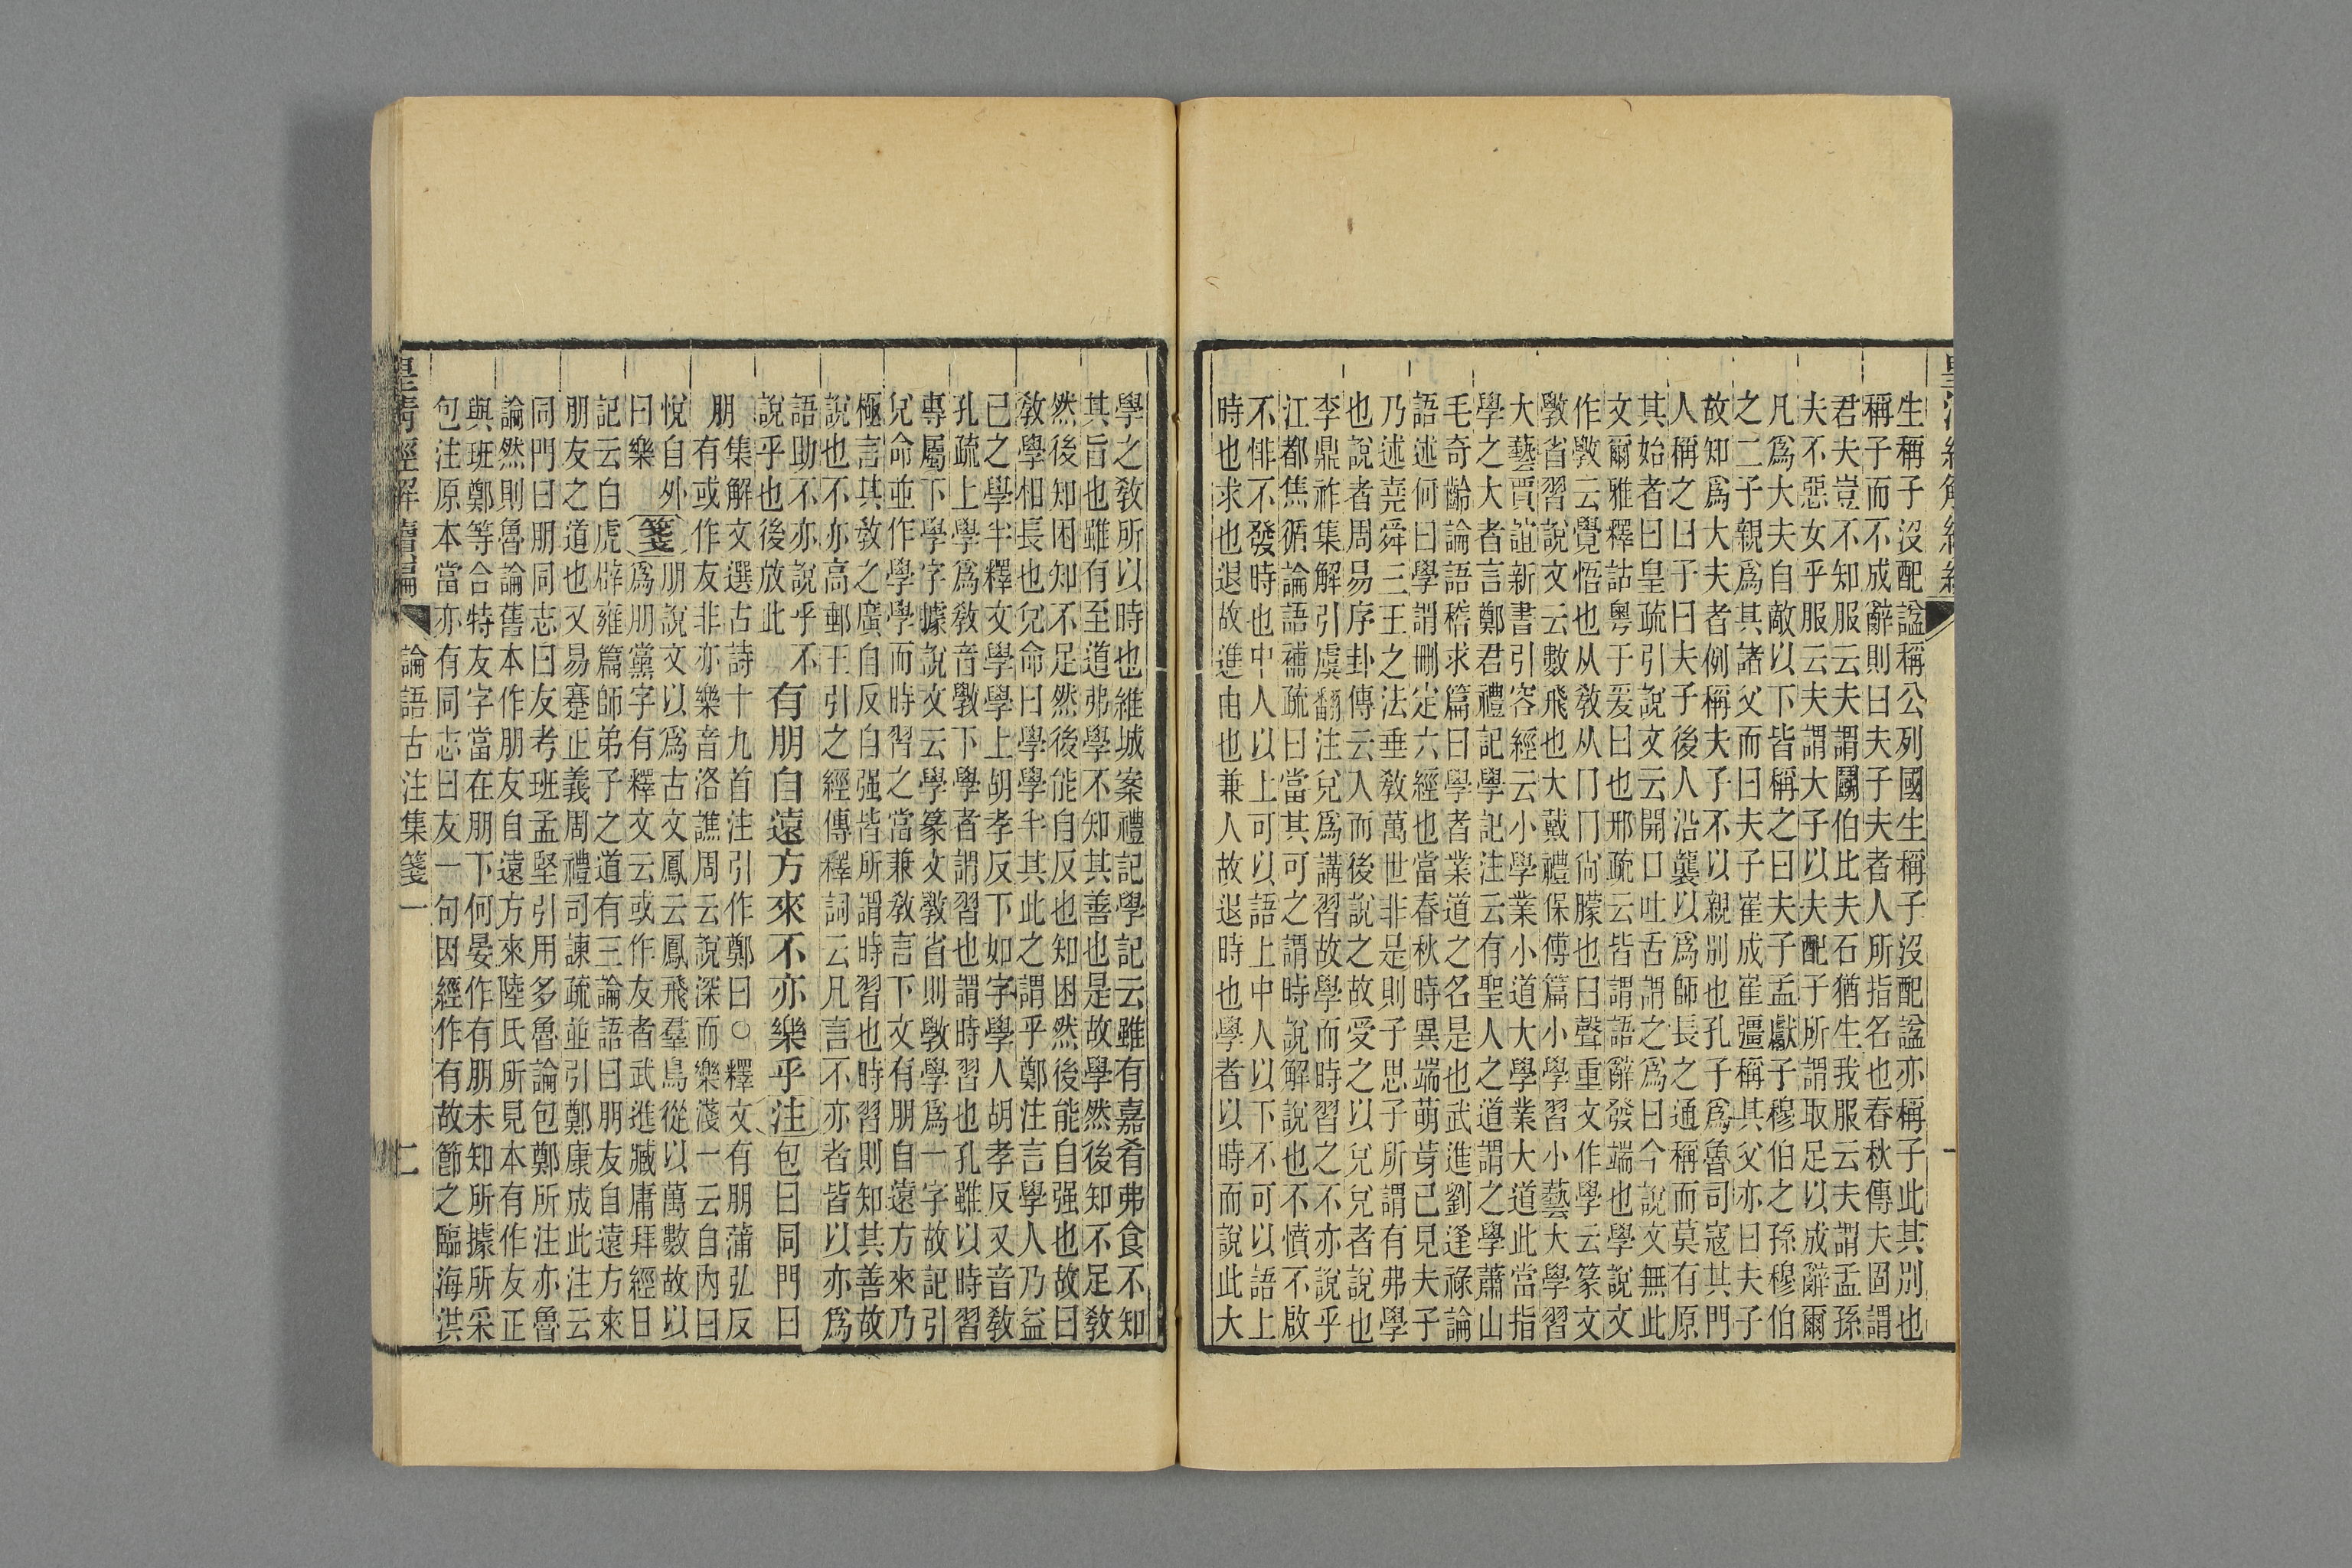 皇清經解續編
生稱子沒配諡稱公列國生稱子沒配諡亦稱子此其別也
稱子而不成辭則曰夫子夫者人所指名也春秋傳夫固謂
君夫豈不知服云夫謂鬭伯比夫石猶生我服云夫謂孟孫
夫不惡女乎服云夫謂大子以夫配于所謂取足以成辭爾
凡爲大夫自敵以下皆稱之曰夫子孟獻子穆伯之孫穆伯
之二子親爲其諸父而曰夫子崔成崔彊稱其父亦曰夫子
故知爲大夫者例稱夫子不以親別也孔子爲魯司寇其門
人稱之曰子曰夫子後人沿襲以爲師長之通稱而莫有原
其始者曰皇疏引說文云開口吐舌謂之爲曰今說文無此
文爾雅釋詁粵于爰曰也邢疏云皆謂語辭發端也學說文
作斆云覺悟也从敎从冂冂尙矇也臼聲重文作學云篆文
斆省習說文云數飛也大戴禮保傅篇曰小學習小藝大學習
大藝賈誼新書引容經云小學業小道大學業大道此當指
學之大者言鄭君禮記學記注云有聖人之道謂之學蕭山
毛奇齡論語稽求篇曰學者業道之名是也武進劉逢祿論
語述何曰學謂刪定六經也當春秋時異端萌芽已見夫子
乃述堯舜三王之法垂敎萬世非是則子思子所謂有弗學
也說者周易序卦傳云入而後說之故受之以兌兌者說也
李鼎祚集解引虞翻注兌爲講習故學而時習之不亦說乎
江都焦循論語補疏曰當其可之謂時說解說也不憤不啟
不悱不發時也中人以上可以語上中人以下不可以語上
時也求也退故進由也兼人故退時也學者以時而說此大
學之敎所以時也維城案禮記學記云雖有嘉肴弗食不知
其旨也雖有至道弗學不知其善也是故學然後知不足敎
然後知困知不足然後能自反也知困然後能自强也故曰
敎學相長也兌命曰學學半其此之謂乎鄭注言學人乃益
已之學半釋文學學上胡孝反下如字學人胡孝反又音敎
孔疏上學爲敎音斆下學者謂習也謂時習也孔雖以時習
專屬下學字據說文云學篆文斆省則斆學爲一字故記引
兌命並作學學而時習之當兼敎言下文有朋自遠方來乃
極言其敎之廣自反自强皆所謂時習也時習則知其善故
說也不亦高郵王引之經傳釋詞云凡言不亦者皆以亦爲
語助不亦說乎不
說乎也後放此
有朋自遠方來不亦樂乎注包曰同門曰
朋
集解文選古詩十九首注引作鄭曰○釋文有朋蒲弘反
有或作友非亦樂音洛譙周云說深而樂淺一云自內曰
悅自外
曰樂
箋
朋說文以爲古文鳳云鳳飛羣鳥從以萬數故以
爲朋黨字有釋文云或作友者武進臧庸拜經日
記云白虎辟雍篇師弟子之道有三論語曰朋友自遠方來
朋友之道也又易蹇正義周禮司諫疏並引鄭康成此注云
同門曰朋同志曰友考班孟堅引用多魯論包鄭所注亦魯
論然則魯論舊本作朋友自遠方來陸氏所見本有作友正
與班鄭等合特友字當在朋下何晏作有朋未知所據所采
包注原本當亦有同志曰友一句因經作有故節之臨海洪
皇清經解續編 論語古注集箋一 二